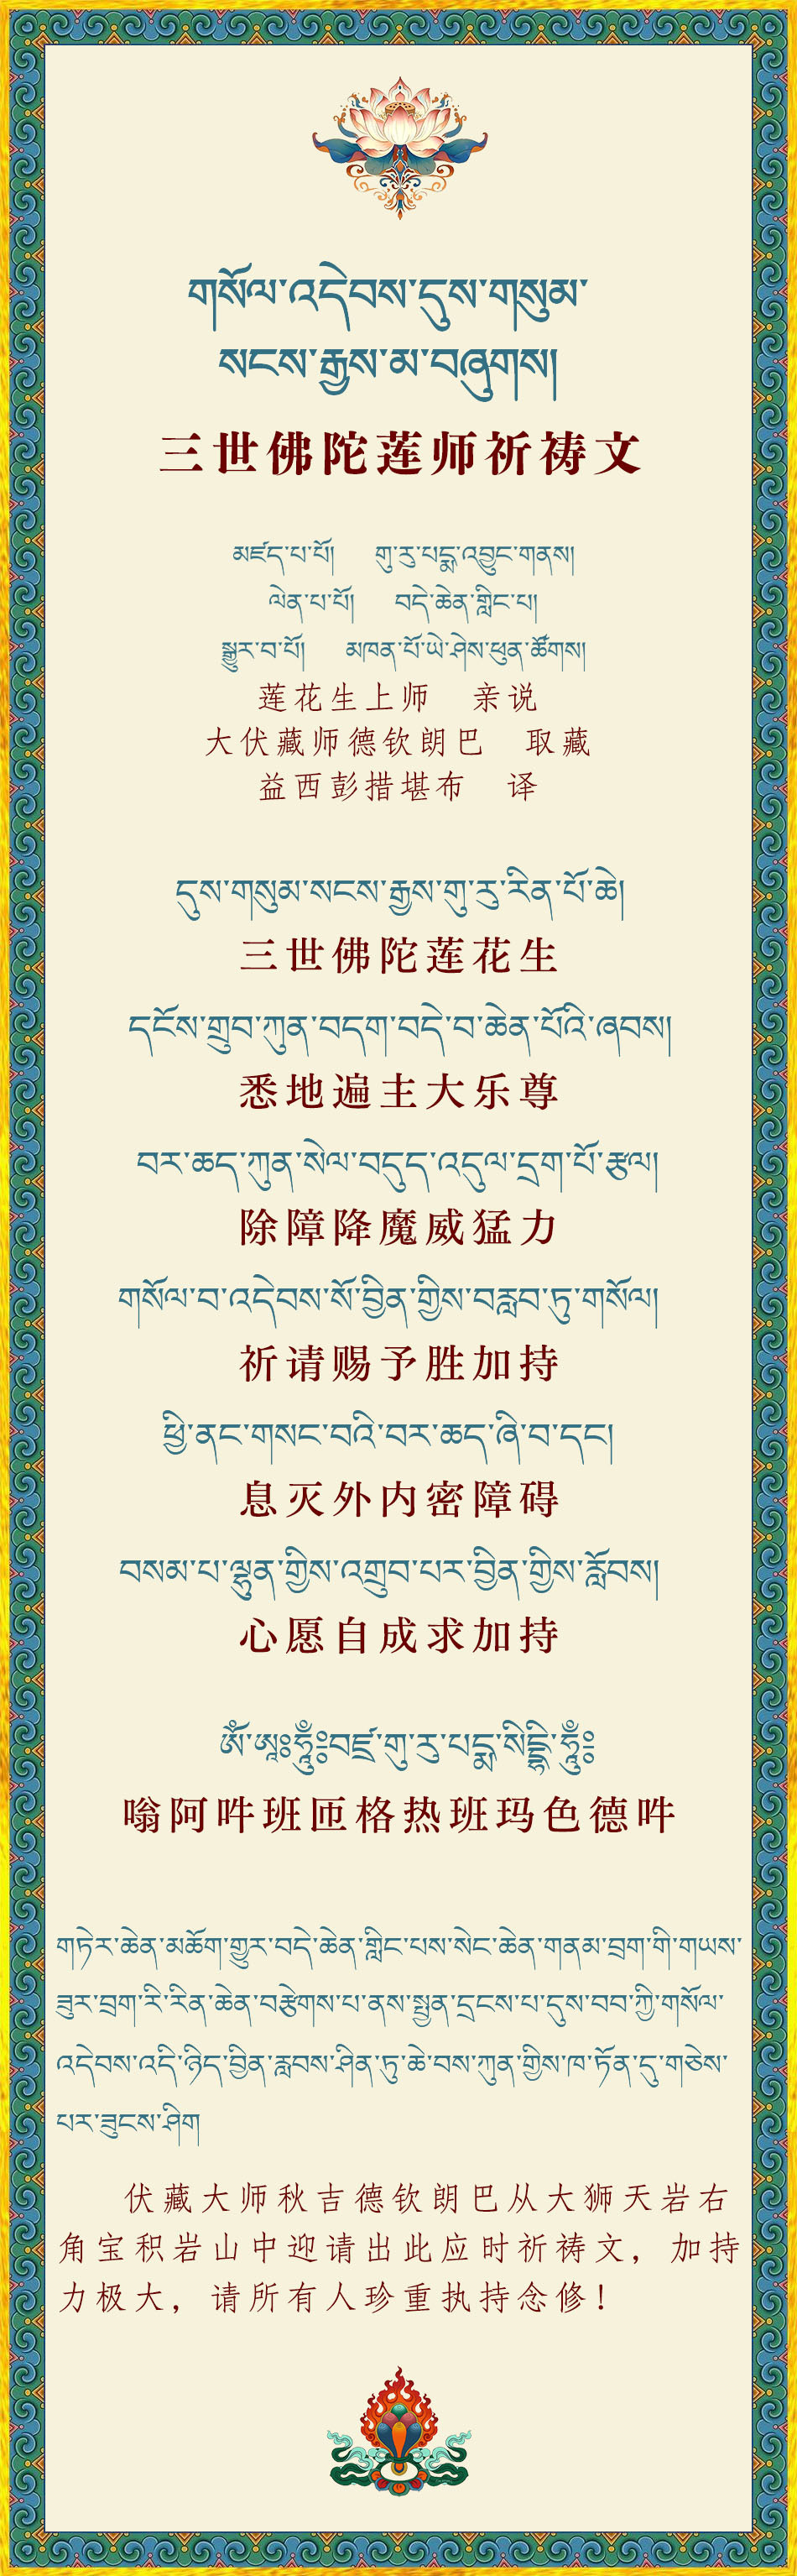 གསོལ་འདེབས་དུས་གསུམ་
སངས་རྒྱས་མ་བཞུགས།
三世佛陀莲师祈祷文
མཛད་པ་པོ། གུ་རུ་པདྨ་འབྱུང་གནས།
ལེན་པ་པོ། བདེ་ཆེན་གླིང་པ།
སྒྱུར་བ་པོ། མཁན་པོ་ཡེ་ཤེས་ཕུན་ཚོགས།
莲花生上师 亲说
大伏藏师德钦朗巴 取藏
益西彭措堪布 译
དུས་གསུམ་སངས་རྒྱས་གུ་རུ་རིན་པོ་ཆེ།
三世佛陀莲花生
དངོས་གྲུབ་ཀུན་བདག་བདེ་བ་ཆེན་པོའི་ཞབས།
悉地遍主大乐尊
བར་ཆད་ཀུན་སེལ་བདུད་འདུལ་དྲག་པོ་རྩལ།
除障降魔威猛力
གསོལ་བ་འདེབས་སོ་བྱིན་གྱིས་བརླབ་ཏུ་གསོལ།
祈请赐予胜加持
ཕྱི་ནང་གསང་བའི་བར་ཆད་ཞི་བ་དང།
息灭外内密障碍
བསམ་པ་ལྷུན་གྱིས་འགྲུབ་པར་བྱིན་གྱིས་རློབས།
心愿自成求加持
ཨོཾ་ཨཱཿཧཱུྃ༔བཛྲ་གུ་རུ་པདྨ་སིདྡྷི་ཧཱུྃ༔
嗡阿吽班匝格热班玛色德吽
གཏེར་ཆེན་མཆོག་གྱུར་བདེ་ཆེན་གླིང་པས་སེང་ཆེན་གནམ་བྲག་གི་གཡས་
ཟུར་བྲག་རི་རིན་ཆེན་བརྩེགས་པ་ནས་སྤྱན་དྲངས་པ་དུས་བབ་ཀྱི་གསོལ་
འདེབས་འདི་ཉིད་བྱིན་རླབས་ཤིན་ཏུ་ཆེ་བས་ཀུན་གྱིས་ཁ་ཏོན་དུ་གཅེས་
པར་ཟུངས་ཤིག
伏藏大师秋吉德钦朗巴从大狮天岩右
角宝积岩山中迎请出此应时祈祷文，加持
力极大，请所有人珍重执持念修！